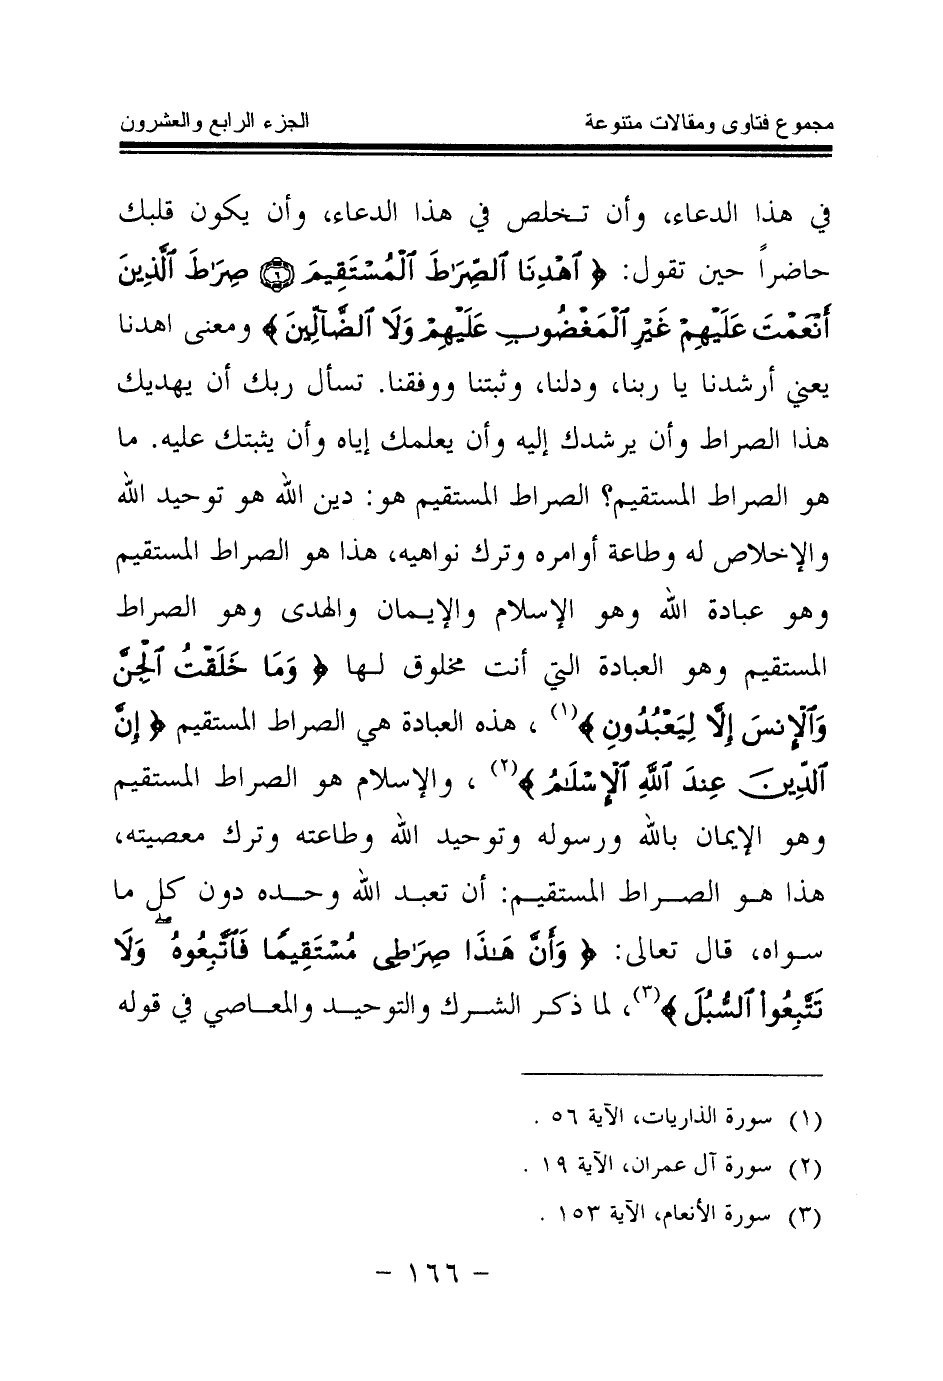 مجموع فتاوى ومقالات متنوعة الجزء الرابع والعشرون
في هذا الدعاء، وأن تـخلص في هذا الدعاء، وأن يكون قلبك
حاضراً حين تقول: ﴿ ٱهْدِنَا ٱلصِّرَٰطَ ٱلْمُسْتَقِيمَ ۝٦ صِرَٰطَ ٱلَّذِينَ
أَنْعَمْتَ عَلَيْهِمْ غَيْرِ ٱلْمَغْضُوبِ عَلَيْهِمْ وَلَا ٱلضَّآلِّينَ ﴾ ومعنى اهدنا
يعني أرشدنا يا ربنا، ودلنا، وثبتنا ووفقنا. تسأل ربك أن يهديك
هذا الصراط وأن يرشدك إليه وأن يعلمك إياه وأن يثبتك عليه. ما
هو الصراط المستقيم؟ الصراط المستقيم هو: دين الله هو توحيد الله
والإخلاص له وطاعة أوامره وترك نواهيه، هذا هو الصراط المستقيم
وهو عبادة الله وهو الإسلام والإيـمان والهدى وهو الصراط
المستقيم وهو العبادة التي أنت مخلوق لـها ﴿ وَمَا خَلَقْتُ ٱلْجِنَّ
وَٱلْإِنسَ إِلَّا لِيَعْبُدُونِ ﴾(١) ، هذه العبادة هي الصراط المستقيم ﴿ إِنَّ
ٱلدِّينَ عِندَ ٱللَّهِ ٱلْإِسْلَٰمُ ﴾(٢) ، والإسلام هو الصراط المستقيم
وهو الإيمان بالله ورسوله وتوحيد الله وطاعته وترك معصيته،
هذا هـو الصـراط المستقيـم: أن تعبـد الله وحـده دون كل ما
سـواه، قال تعالى: ﴿ وَأَنَّ هَٰذَا صِرَٰطِى مُسْتَقِيمًا فَٱتَّبِعُوهُ ۖ وَلَا
تَتَّبِعُوا۟ ٱلسُّبُلَ ﴾(٣)، لما ذكـر الشـرك والتوحيـد والمعـاصي في قوله
(١) سورة الذاريات، الآية ٥٦ .
(٢) سورة آل عمران، الآية ١٩ .
(٣) سورة الأنعام، الآية ١٥٣ .
- ١٦٦ -